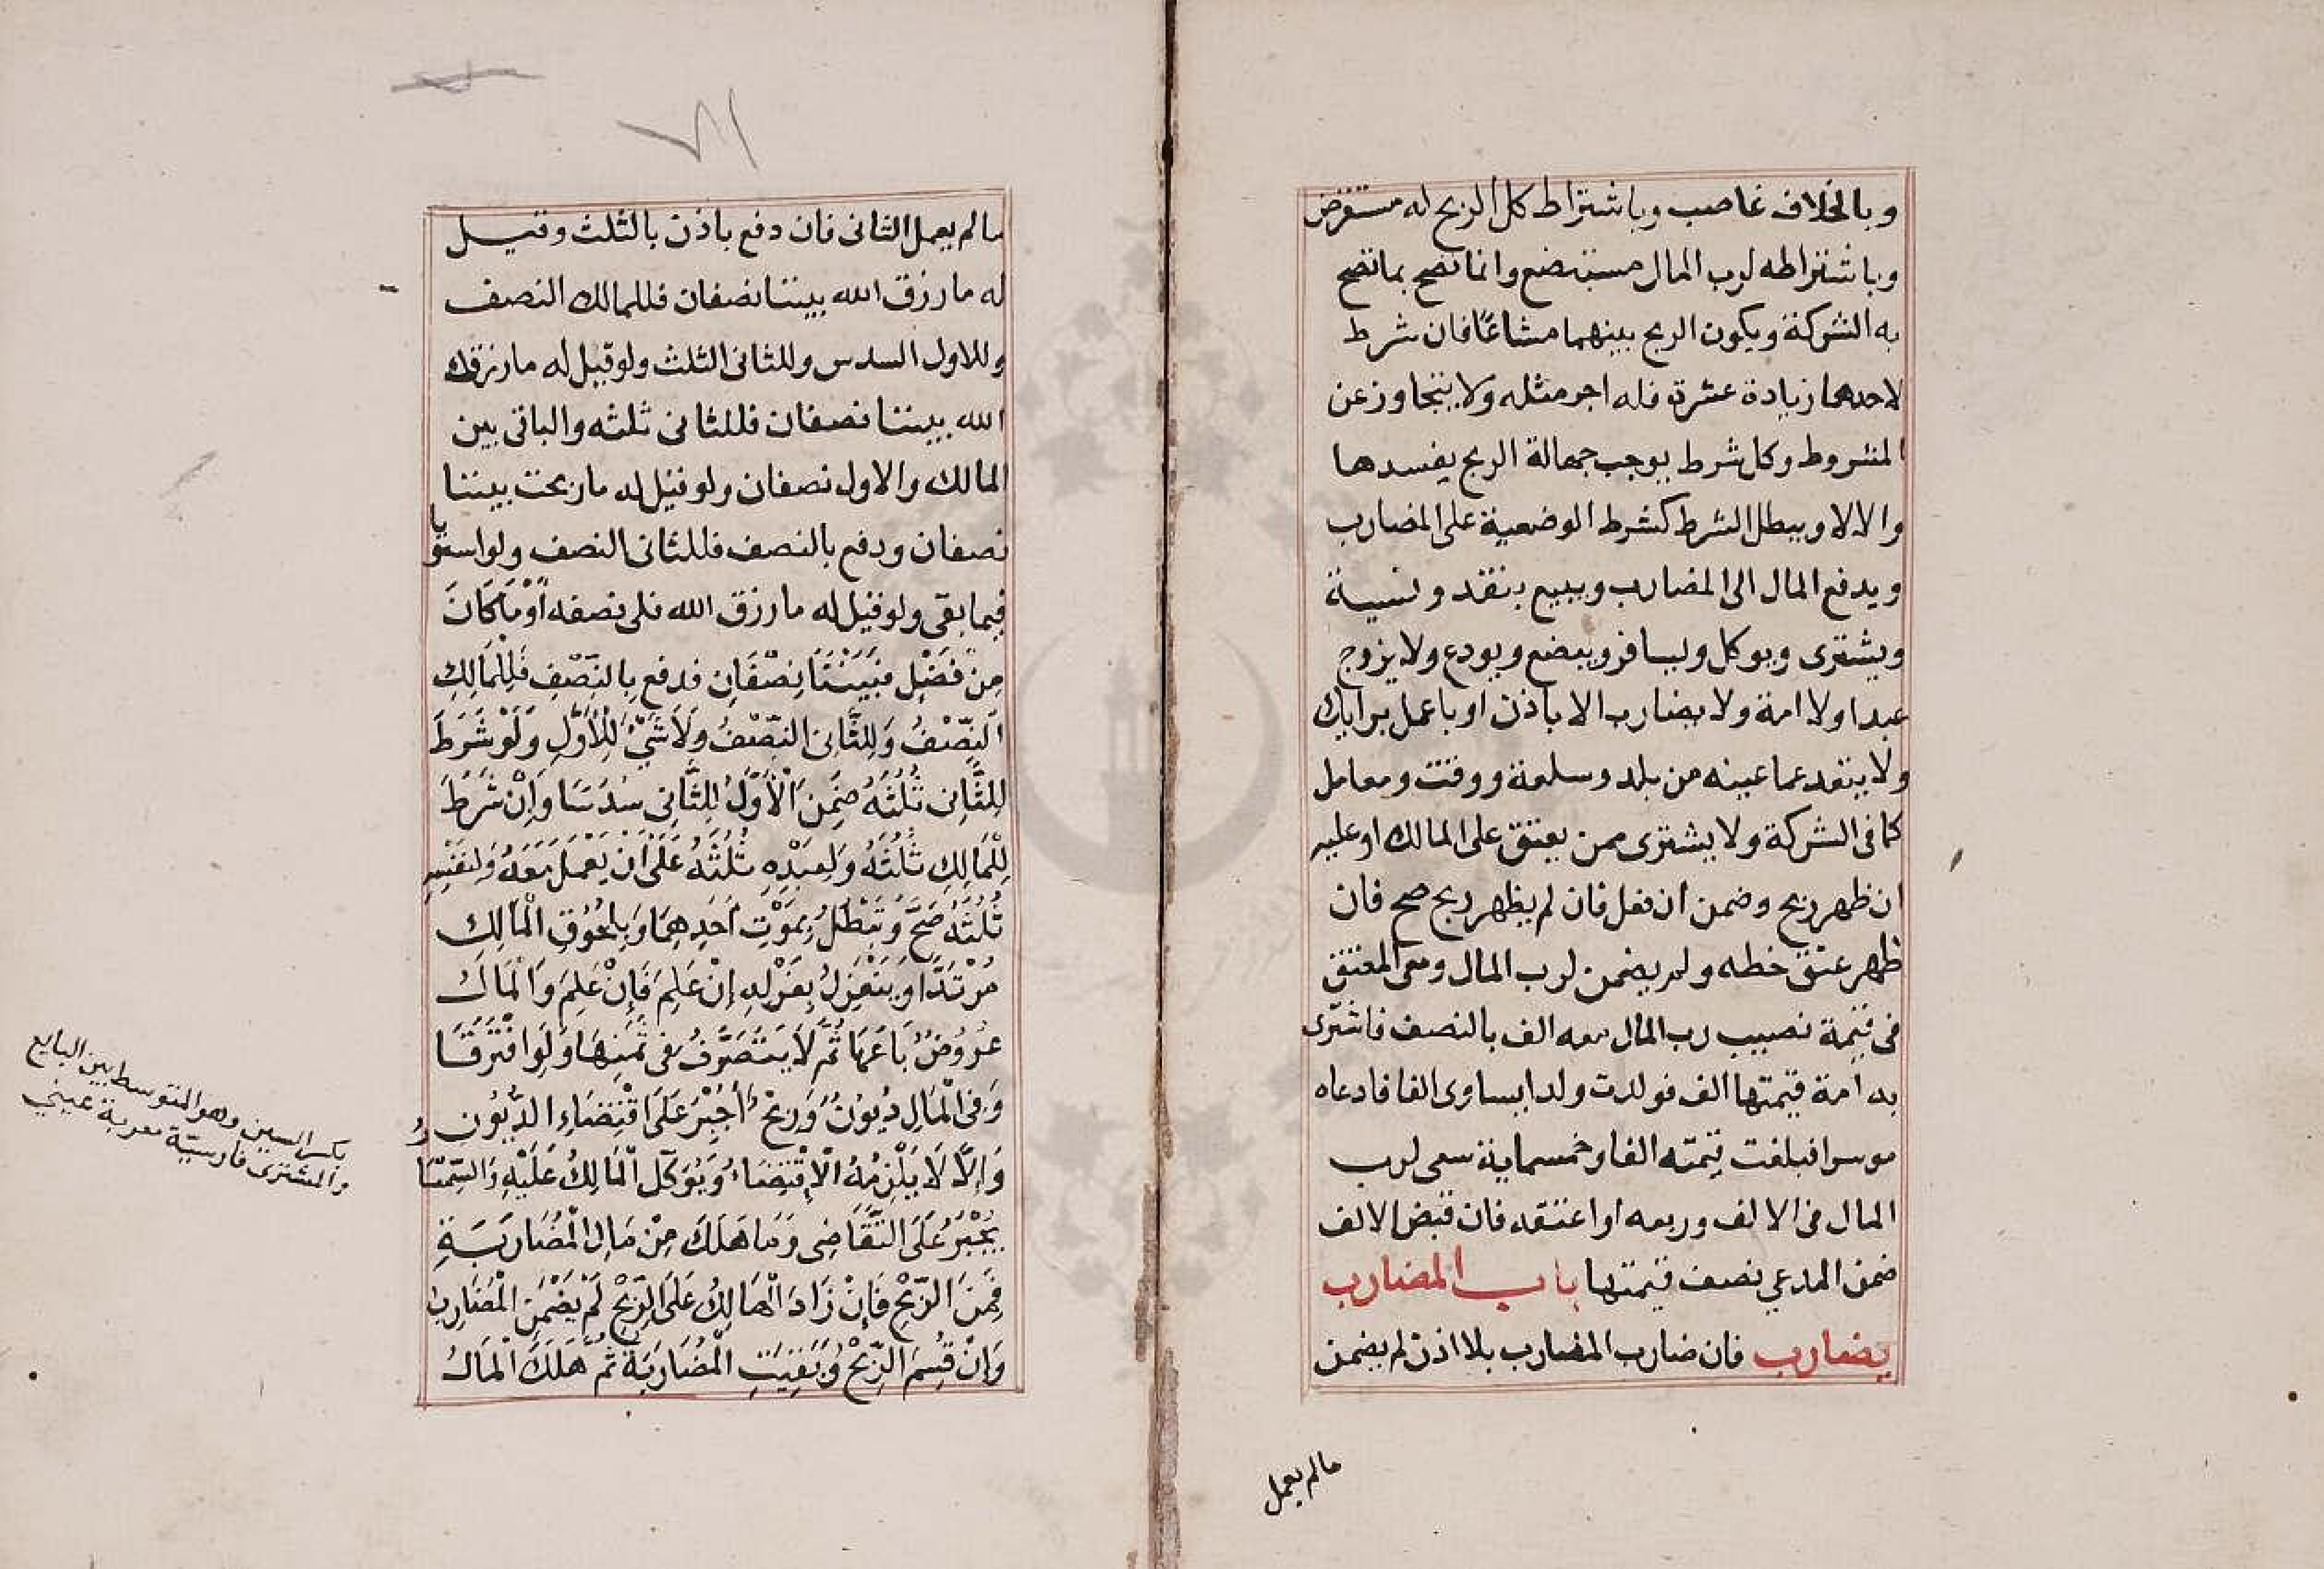 وبالخلاف غاصب وباشتراط كل الربح له مستقرض
وباشتراطه لرب المال مستبضع وانما تصح بما تصح
به الشركة ويكون الربح بينهما مشاعًا فان شرط
لاحدهما زيادة عشرة فله اجر مثله ولا يتجاوز عن
المشروط وكل شرط يوجب جهالة الربح يفسدها
والا لا ويبطل الشرط كشرط الوضعية على المضارب
ويدفع المال الى المضارب ويبيع بنقد ونسيئة
ويشترى ويوكل ويسافر ويبضع ويودع ولا يزوج
عبدا ولا امة ولا يضارب الا باذن او باعمل برايك
ولا يتعد عما عينه من بلد وسلعة ووقت ومعامل
كما فى الشركة ولا يشترى من يعتق على المالك او عليه
ان ظهر ربح وضمن ان فعل فان لم يظهر ربح صح فان
ظهر عتق خطه ولم يضمن لرب المال وسعى المعتق
فى قيمة نصيب رب المال معه الف بالنصف فاشترى
به امة قيمتها الف فولدت ولدا يساوى الفا فادعاه
موسرا فبلغت قيمته الفا وخمسماية سعى لرب
المال فى الالف وربعه او اعتقه فان قبض الالف
ضمن المدعي نصف قيمتها باب المضارب
يضارب فان ضارب المضارب بلا اذن لم يضمن
مالم يعمل
مالم يعمل الثانى فان دفع باذن بالثلث وقيل
له ما رزق الله بيننا نصفان فللمالك النصف
وللاول السدس وللثانى الثلث ولو قيل له ما رزقك
الله بيننا نصفان فللثانى ثلثه والباقى بين
المالك والاول نصفان ولو قيل له ما ربحت بيننا
نصفان ودفع بالنصف فللثانى النصف ولو استويا
فيما بقى ولو قيل له ما رزق الله فلى نصفه أَوْ مَا كَانَ
مِنْ فَضْلٍ فَبَيْنَنَا نِصْفَانِ فدفع بِالنِّصْفِ فَلِلْمَالِكِ
اَلنِّصْفُ وَلِلثَّانِى النِّصْفُ وَلَا شَيْءَ لِلْأَوَّلِ وَلَوْ شَرَطَ
لِلثَّانِى ثُلُثَهُ ضَمِنَ الْأَوَّلُ لِلثَّانِى سُدُسًا وَإِنْ شَرَطَ
لِلْمَالِكِ ثُلُثَهُ وَلِعَبْدِهِ ثُلُثَهُ عَلَى اَنْ يَعْمَلَ مَعَهُ وَلِنَفْسِهِ
ثُلُثَهُ صَحَّ وَتَبْطُلُ بِمَوْتِ اَحَدِهِمَا وَبِلُحُوقِ الْمَالِكِ
مُرْتَدًّا وَيَنْعَزِلُ بِعَزْلِهِ إِنْ عَلِمَ فَإِنْ عَلِمَ وَالْمَالُ
عُرُوضٌ بَاعَهَا ثُمَّ لَا يَتَصَرَّفُ فِى ثَمَنِهَا وَلَوِ افْتَرَقَا
وَفِى الْمَالِ دُيُونٌ وَرِبْحٌ أُجْبِرَ عَلَى اقْتِضَاءِ الدُّيُونِ
وَإِلَّا لَا يَلْزَمُهُ الْاِقْتِضَاءُ وَيُوَكِّلُ الْمَالِكَ عَلَيْهِ وَالسِّمْسَارُ
يُجْبَرُ عَلَى التَّقَاضِى وَمَا هَلَكَ مِنْ مَالِ الْمُضَارَبَةِ
فَمِنَ الرِّبْحِ فَإِنْ زَادَ الْهَالِكُ عَلَى الرِّبْحِ لَمْ يَضْمَنِ الْمُضَارِبُ
وَإِنْ قُسِمَ الرِّبْحُ وَبَقِيَتِ الْمُضَارَبَةُ ثُمَّ هَلَكَ الْمَالُ
بكسر السين وهو المتوسط بين البايع
والمشترى فارسيّة معربة عيني